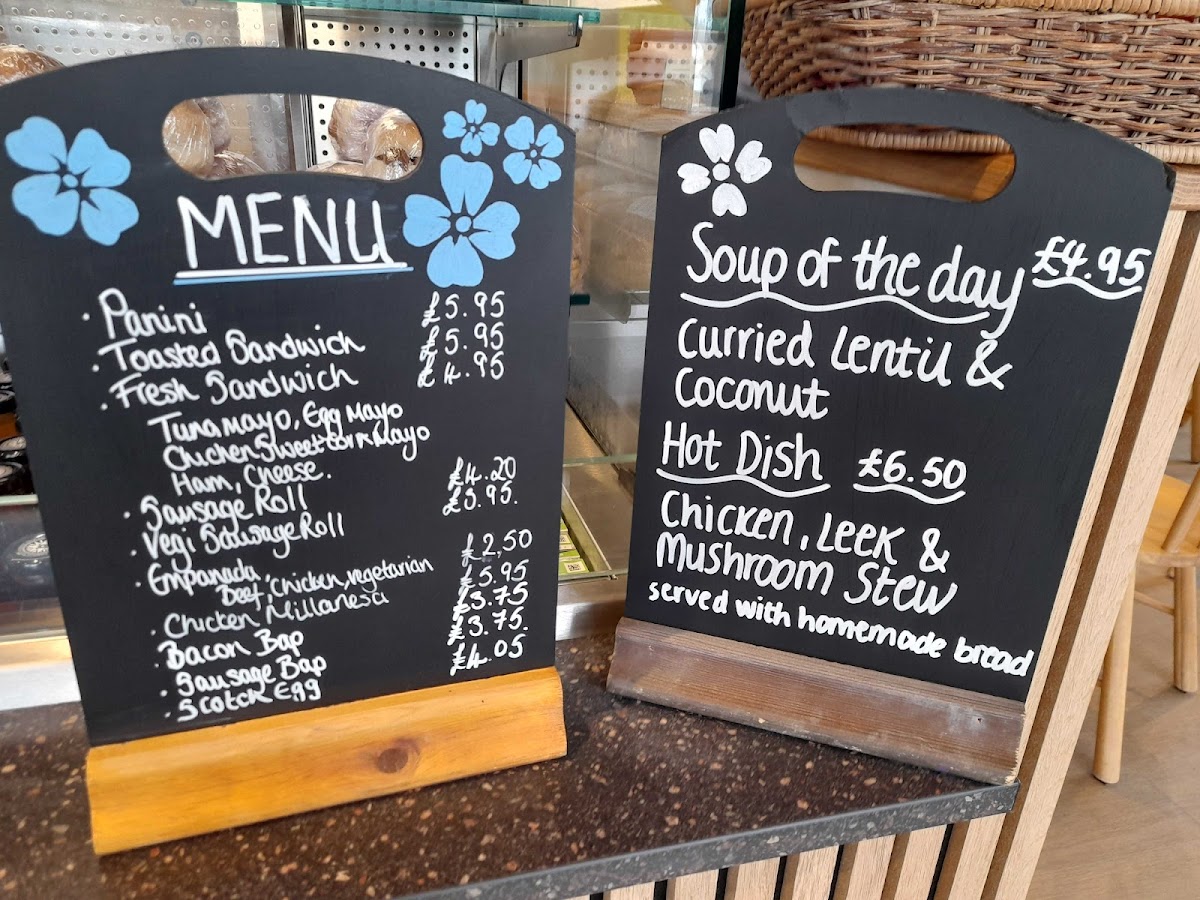 MENU
· Panini £5.95
· Toasted Sandwich £5.95
· Fresh Sandwich £4.95
Tuna mayo, Egg Mayo
Chicken Sweetcorn Mayo
Ham, Cheese.
· Sausage Roll £4.20
· Vegi Sausage Roll £3.95.
· Empanada £2,50
Beef, Chicken, vegetarian
· Chicken Millanesa £5.95
· Bacon Bap £3.75
· Sausage Bap £3.75.
· Scotch Egg £4.05
Soup of the day £4.95
Curried Lentil &
Coconut
Hot Dish £6.50
Chicken, Leek &
Mushroom Stew
served with homemade bread